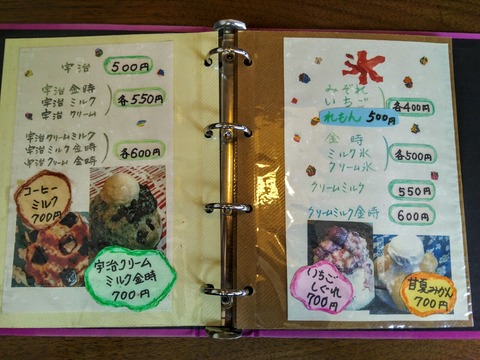 宇治 500円
宇治 金時
宇治 ミルク
宇治 クリーム
各550円
宇治クリームミルク
宇治ミルク金時
宇治クリーム金時
各600円
コーヒー
ミルク
700円
宇治クリーム
ミルク金時
700円
氷
みぞれ
いちご
各400円
れもん 500円
金時
ミルク氷
クリーム氷
各500円
クリームミルク 550円
クリームミルク金時 600円
いちご
しぐれ
700円
甘夏みかん
700円